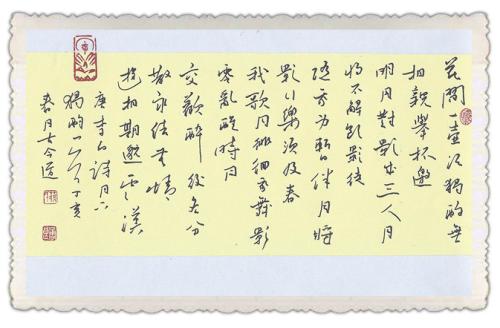 花間一壺酒獨酌無
相親舉杯邀
明月對影成三人月
既不解飲影徒
隨身暫伴月將
影行樂須及春
我歌月徘徊我舞影
零亂醒時同
交歡醉後各分
散永結無情
遊相期邈雲漢
唐李白詩月下
獨酌一首丁亥
春月古今